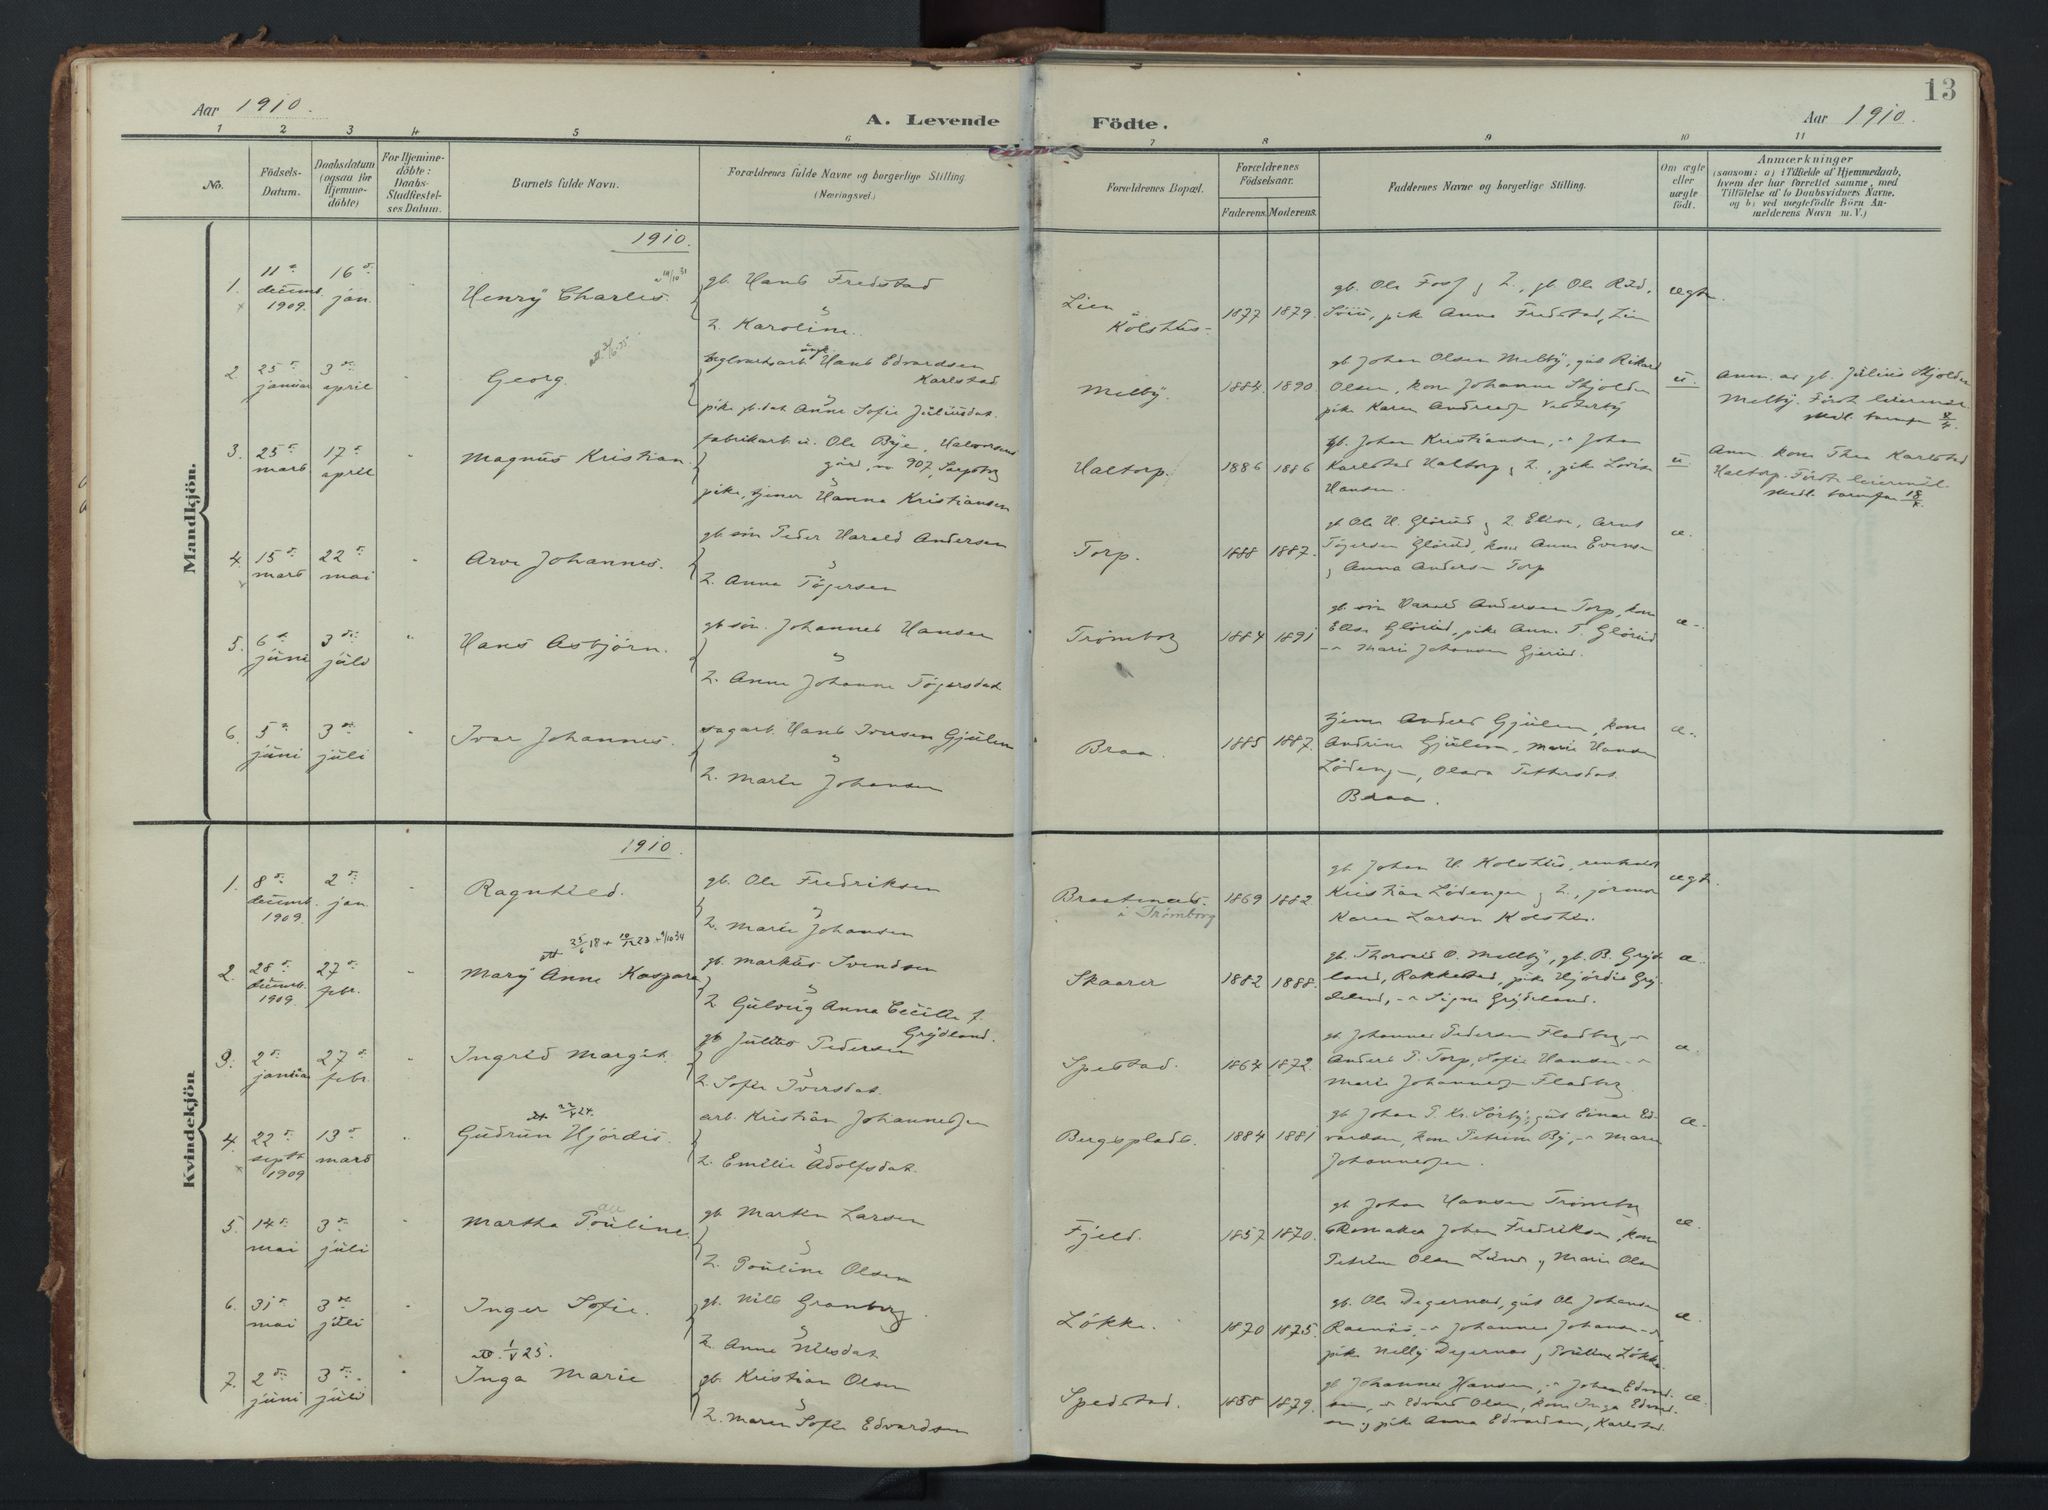 13
Aar 1910.
A. Levende Födte.
Aar 1910.
1 2 3 4 5 6 7 8 9 10 11
No.
Födsels-
Datum.
Daabsdatum
(ogsaa for
Hjemme-
döbte)
For Hjemme-
döbte:
Daabs-
Stadfæstel-
ses Datum.
Barnets fulde Navn.
Forældrenes fulde Navne og borgerlige Stilling
(Næringsvei.)
Forældrenes Bopæl.
Forældrenes
Födselsaar.
Faderens. Moderens.
Faddernes Navne og borgerlige Stilling.
Om ægte
eller
uægte
födt.
Anmærkninger
(saasom: a) i Tilfælde af Hjemmedaab,
hvem der har forrettet samme, med
Tilföielse af to Daabsvidners Navne.
og b) ved uægtefödte Börn An-
melderens Navn m.V.)
Mandkjön.
1910.
1. 11 decemb. 1909. 16 jan. Henry Charles.
gb. Hans Fredstad
2. Karoline.
Lien Kölshus- 1877 1879.
gb. Ole Foss y 2., gb. Ole Rud,
pike Anna Fredstad, Lien
ægte.
2. 25 januar 3 april Georg.
Hans Edvardsen
Karlstad
pike gb.dat Anne Sofie Juliusdat.
Melby. 1884. 1890.
gb. Johan Olsen Melby, gut Rikard
Olsen, kone Johanne Skjolden
pike Karen Andreasen
u.
Anm. av gb. Julius Skjolden
Melby. Först leiermål
3. 25 mars 17 april Magnus Kristian.
fabrikarb. u. Ole Bye, Halvorsens
gård, no 907, Sarpsborg
pike, tjener Hanna Kristiansen
Haltorp. 1886 1886
gb. Johan Kristiansen, -" Johan
Karlstad Haltorp y 2., pike Lovise
Hansen.
u
Anm. kone Thea Karlstad
Haltorp. Först leiermål
4. 15 mars 22 mai Arve Johannes.
gb. sön Peder Harald Andersen
2. Anna Tögersen
Torp. 1888 1887.
gb Ole H. Glörud y 2 Elise,
Tögersen Glörud, kone Anne
y Anna Andersen Torp
æ.
5. 6 juni 3 juli Hans Asbjörn.
gb sön. Johannes Hansen
2. Anne Johanne Tögersdat.
Trömborg 1884 1891
gb. sön Harald Andersen Torp, kone
Elise Glörud, pike Anne T. Glörud
-" Marie Johansen Gjerud.
æ.
6. 5 juni 3 juli Ivar Johannes.
sagarb. Hans Iversen Gjulem
2. Marie Johansen
Braa. 1885 1887.
Anders Gjulem, kone
Andrine Gjulem, Marie Hansen
Lödengen, Olava Pettersdat.
Braa.
æ.
Kvindekjön
1910.
1. 8 decemb. 1909. 2 jan. Ragnhild.
gb. Ole Fredriksen
2. Marie Johansen
Braatenes. i Trömborg 1869 1882.
gb Johan H. Kolshus,
Kristian Lödengen y 2., jormor
Karen Larsen Kolshus.
ægte.
2. 28 decemb. 1909. 27 febr. Mary Anne Kaspara
gb. Markus Svendsen
2 Gulvig Anna Cecilie f.
Grydeland.
Skaarer 1882 1888.
gb. Thorvald O. Melby, gb. B. Gryde-
land, Rakkestad, pike Hjördis Gry-
deland, -" Signe Grydeland.
æ.
3. 2 januar 27 febr. Ingrid Margit.
gb Julius Pedersen
2. Sofie Iversdat.
Spestad. 1864 1872.
gb. Johannes Pedersen Fladberg, -"
Anders P. Torp, Sofie Hansen -"
Marie Johannesen Fladberg.
æ.
4. 22 septb. 1909 13 mars Gudrun Hjördis.
arb. Kristian Johannesen
2. Emilie Adolfsdat.
Bergsplads. 1884 1881
gb. Johan P. Kr. Sörby, gut Einar Ed-
vardsen, kone Petrine By, -" Maren
Johannesen.
æ.
5. 14 mai 3 juli Martha Pouline.
gb. Martin Larsen
2. Pouline Olsen
Fjeld. 1857 1870.
gb Johan Hansen Trömborg
skomaker Johan Fredriksen, kone
Petrine Olsen Lund y Marie Olsen
æ.
6. 31 mai 3 juli Inger Sofie.
gb. Nils Granberg.
2. Anne Nilsdat.
Lökke. 1870 1875.
gb. Ole Degernes, gut Ole Johansen
-" Johannes Johansen
pike Nelly Degernes y Pouline Lökke
æ
7. 2 juni 3 juli Inga Marie
gb. Kristian Olsen
2. Maren Sofie Edvardsen
Spedstad. 1858 1879.
gb Johannes Hansen, -" Johan Edvard-
sen, -" Edvard Olsen, kone Inga Edvard-
sen y pike Anna Edvardsen, Karlstad.
æ.